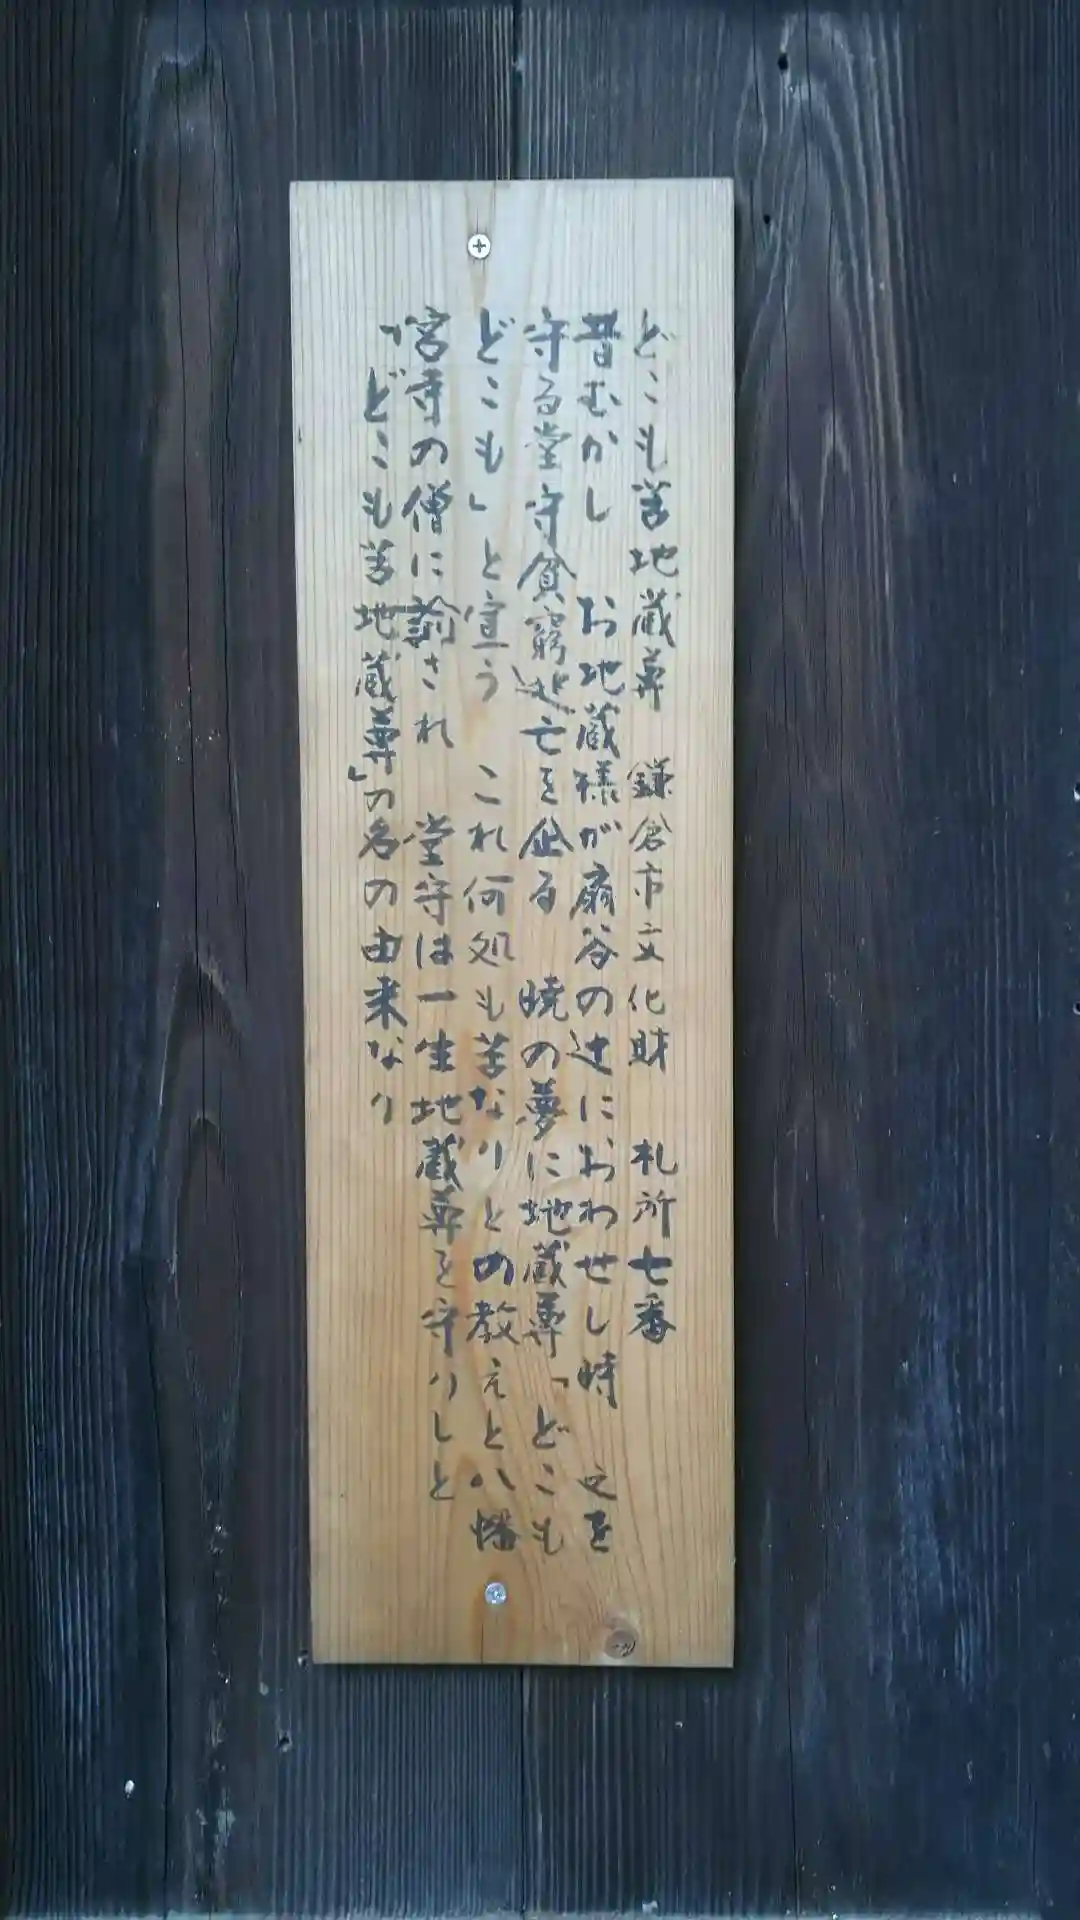 どこも苦地蔵尊　鎌倉市文化財　札所七番
昔むかし　お地蔵様が扇谷の辻におわせし時　之を
守る堂守貧窮逃亡を企る　暁の夢に地蔵尊「どこも
どこも」と宣う　これ何処も苦なりとの教えと八幡
宮寺の僧に諭され　堂守は一生地蔵尊を守りしと
「どこも苦地蔵尊」の名の由来なり